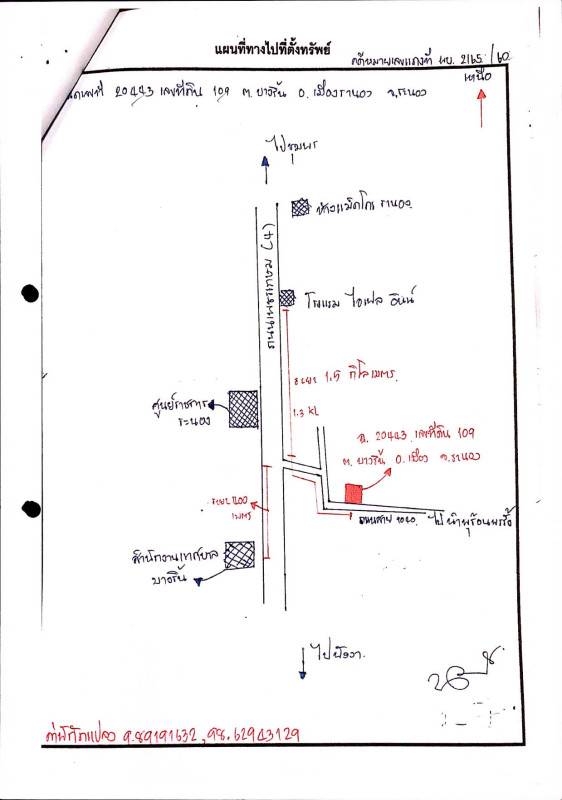 แผนที่ทางไปที่ตั้งทรัพย์
คดีหมายเลขแดงที่ ผบ. 2165/60
เหนือ
20443 เลขที่ดิน 109 ต. บางริ้น อ. เมืองระนอง จ. ระนอง
ไปชุมพร
ห้างแม็คโคร ระนอง
ถนนเพชรเกษม (4)
โรงแรม ไอเฟล อินน์
ระยะ 1.5 กิโลเมตร
1.3 KL
ศูนย์ราชการ
ระนอง
ฉ. 20443 เลขที่ดิน 109
ต. บางริ้น อ. เมือง จ. ระนอง
ระยะ 400
เมตร
ถนนสาย
ไปน้ำพุร้อนพรรั้ง
สำนักงานเทศบาล
บางริ้น
ไปพังงา
ค่าพิกัดแปลง 9.89191632, 98.62943129